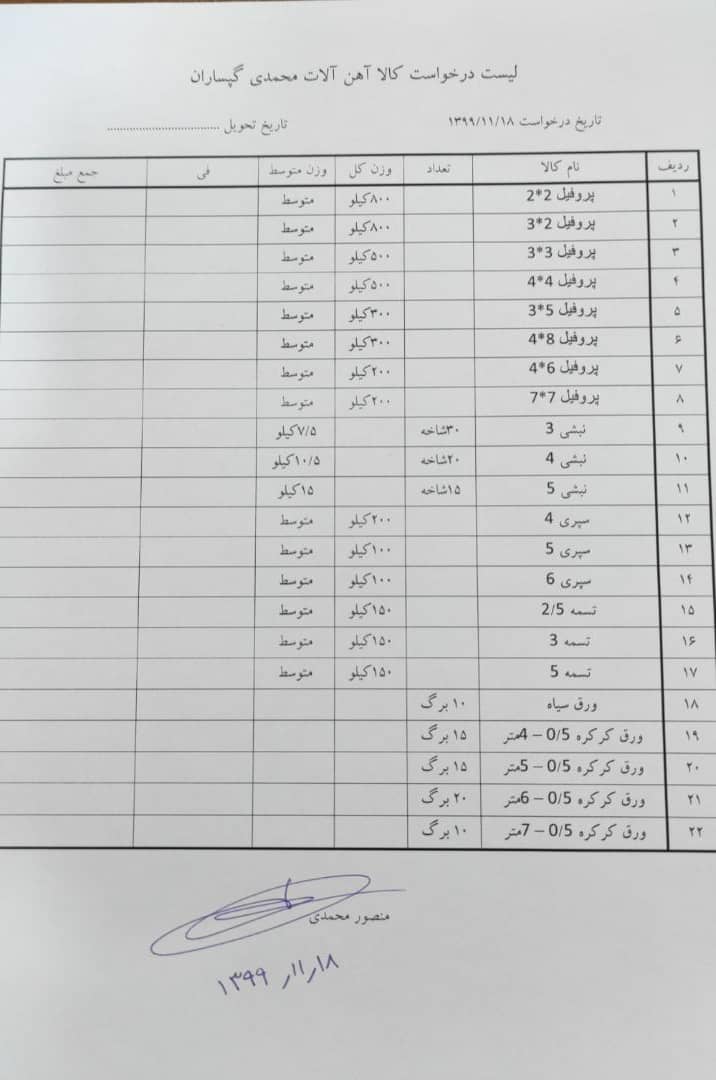 لیست درخواست کالا آهن آلات محمدی گپساران
تاریخ درخواست ۱۳۹۹/۱۱/۱۸ تاریخ تحویل ................................
ردیف نام کالا تعداد وزن کل وزن متوسط فی جمع مبلغ
۱ پروفیل 2*2 ۸۰۰کیلو متوسط
۲ پروفیل 2*3 ۸۰۰کیلو متوسط
۳ پروفیل 3*3 ۵۰۰کیلو متوسط
۴ پروفیل 4*4 ۵۰۰کیلو متوسط
۵ پروفیل 5*3 ۳۰۰کیلو متوسط
۶ پروفیل 8*4 ۳۰۰کیلو متوسط
۷ پروفیل 6*4 ۲۰۰کیلو متوسط
۸ پروفیل 7*7 ۲۰۰کیلو متوسط
۹ نبشی 3 ۳۰شاخه ۷/۵کیلو
۱۰ نبشی 4 ۲۰شاخه ۱۰/۵کیلو
۱۱ نبشی 5 ۱۵شاخه ۱۵کیلو
۱۲ سپری 4 ۲۰۰کیلو متوسط
۱۳ سپری 5 ۱۰۰کیلو متوسط
۱۴ سپری 6 ۱۰۰کیلو متوسط
۱۵ تسمه 2/5 ۱۵۰کیلو متوسط
۱۶ تسمه 3 ۱۵۰کیلو متوسط
۱۷ تسمه 5 ۱۵۰کیلو متوسط
۱۸ ورق سیاه ۱۰ برگ
۱۹ ورق کرکره 0/5 – 4متر ۱۵ برگ
۲۰ ورق کرکره 0/5 – 5متر ۱۵ برگ
۲۱ ورق کرکره 0/5 – 6متر ۲۰ برگ
۲۲ ورق کرکره 0/5 – 7متر ۱۰ برگ
منصور محمدی
۱۸ر۱۱ر۱۳۹۹